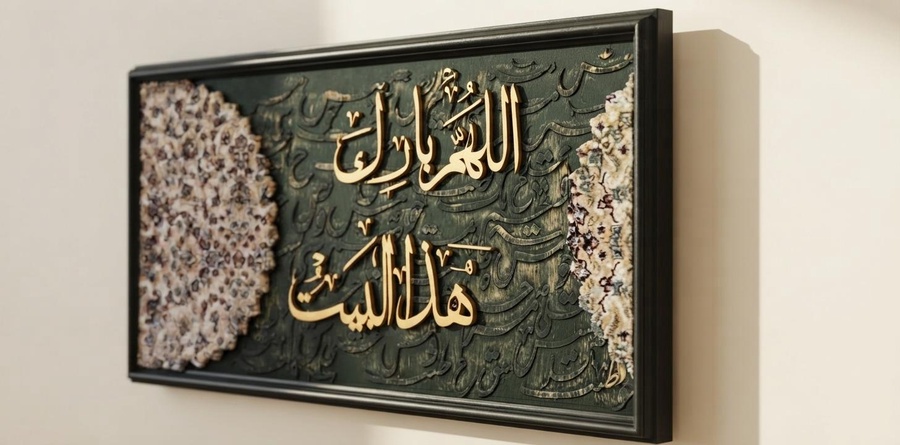 اللهُمَّ بارِك
هذا البيت